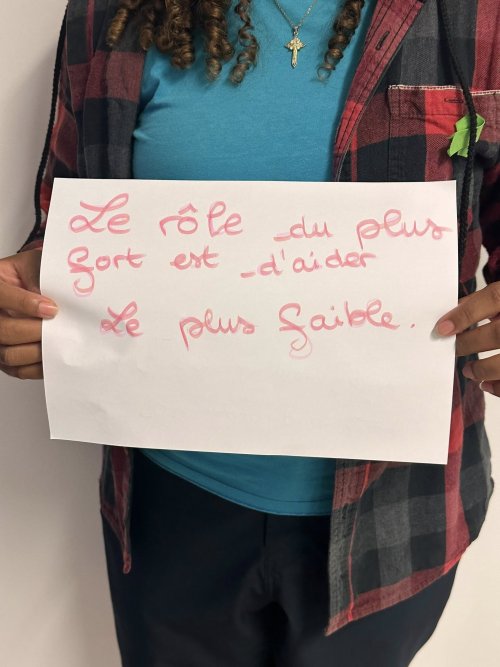 Le rôle du plus
fort est d'aider
Le plus faible.